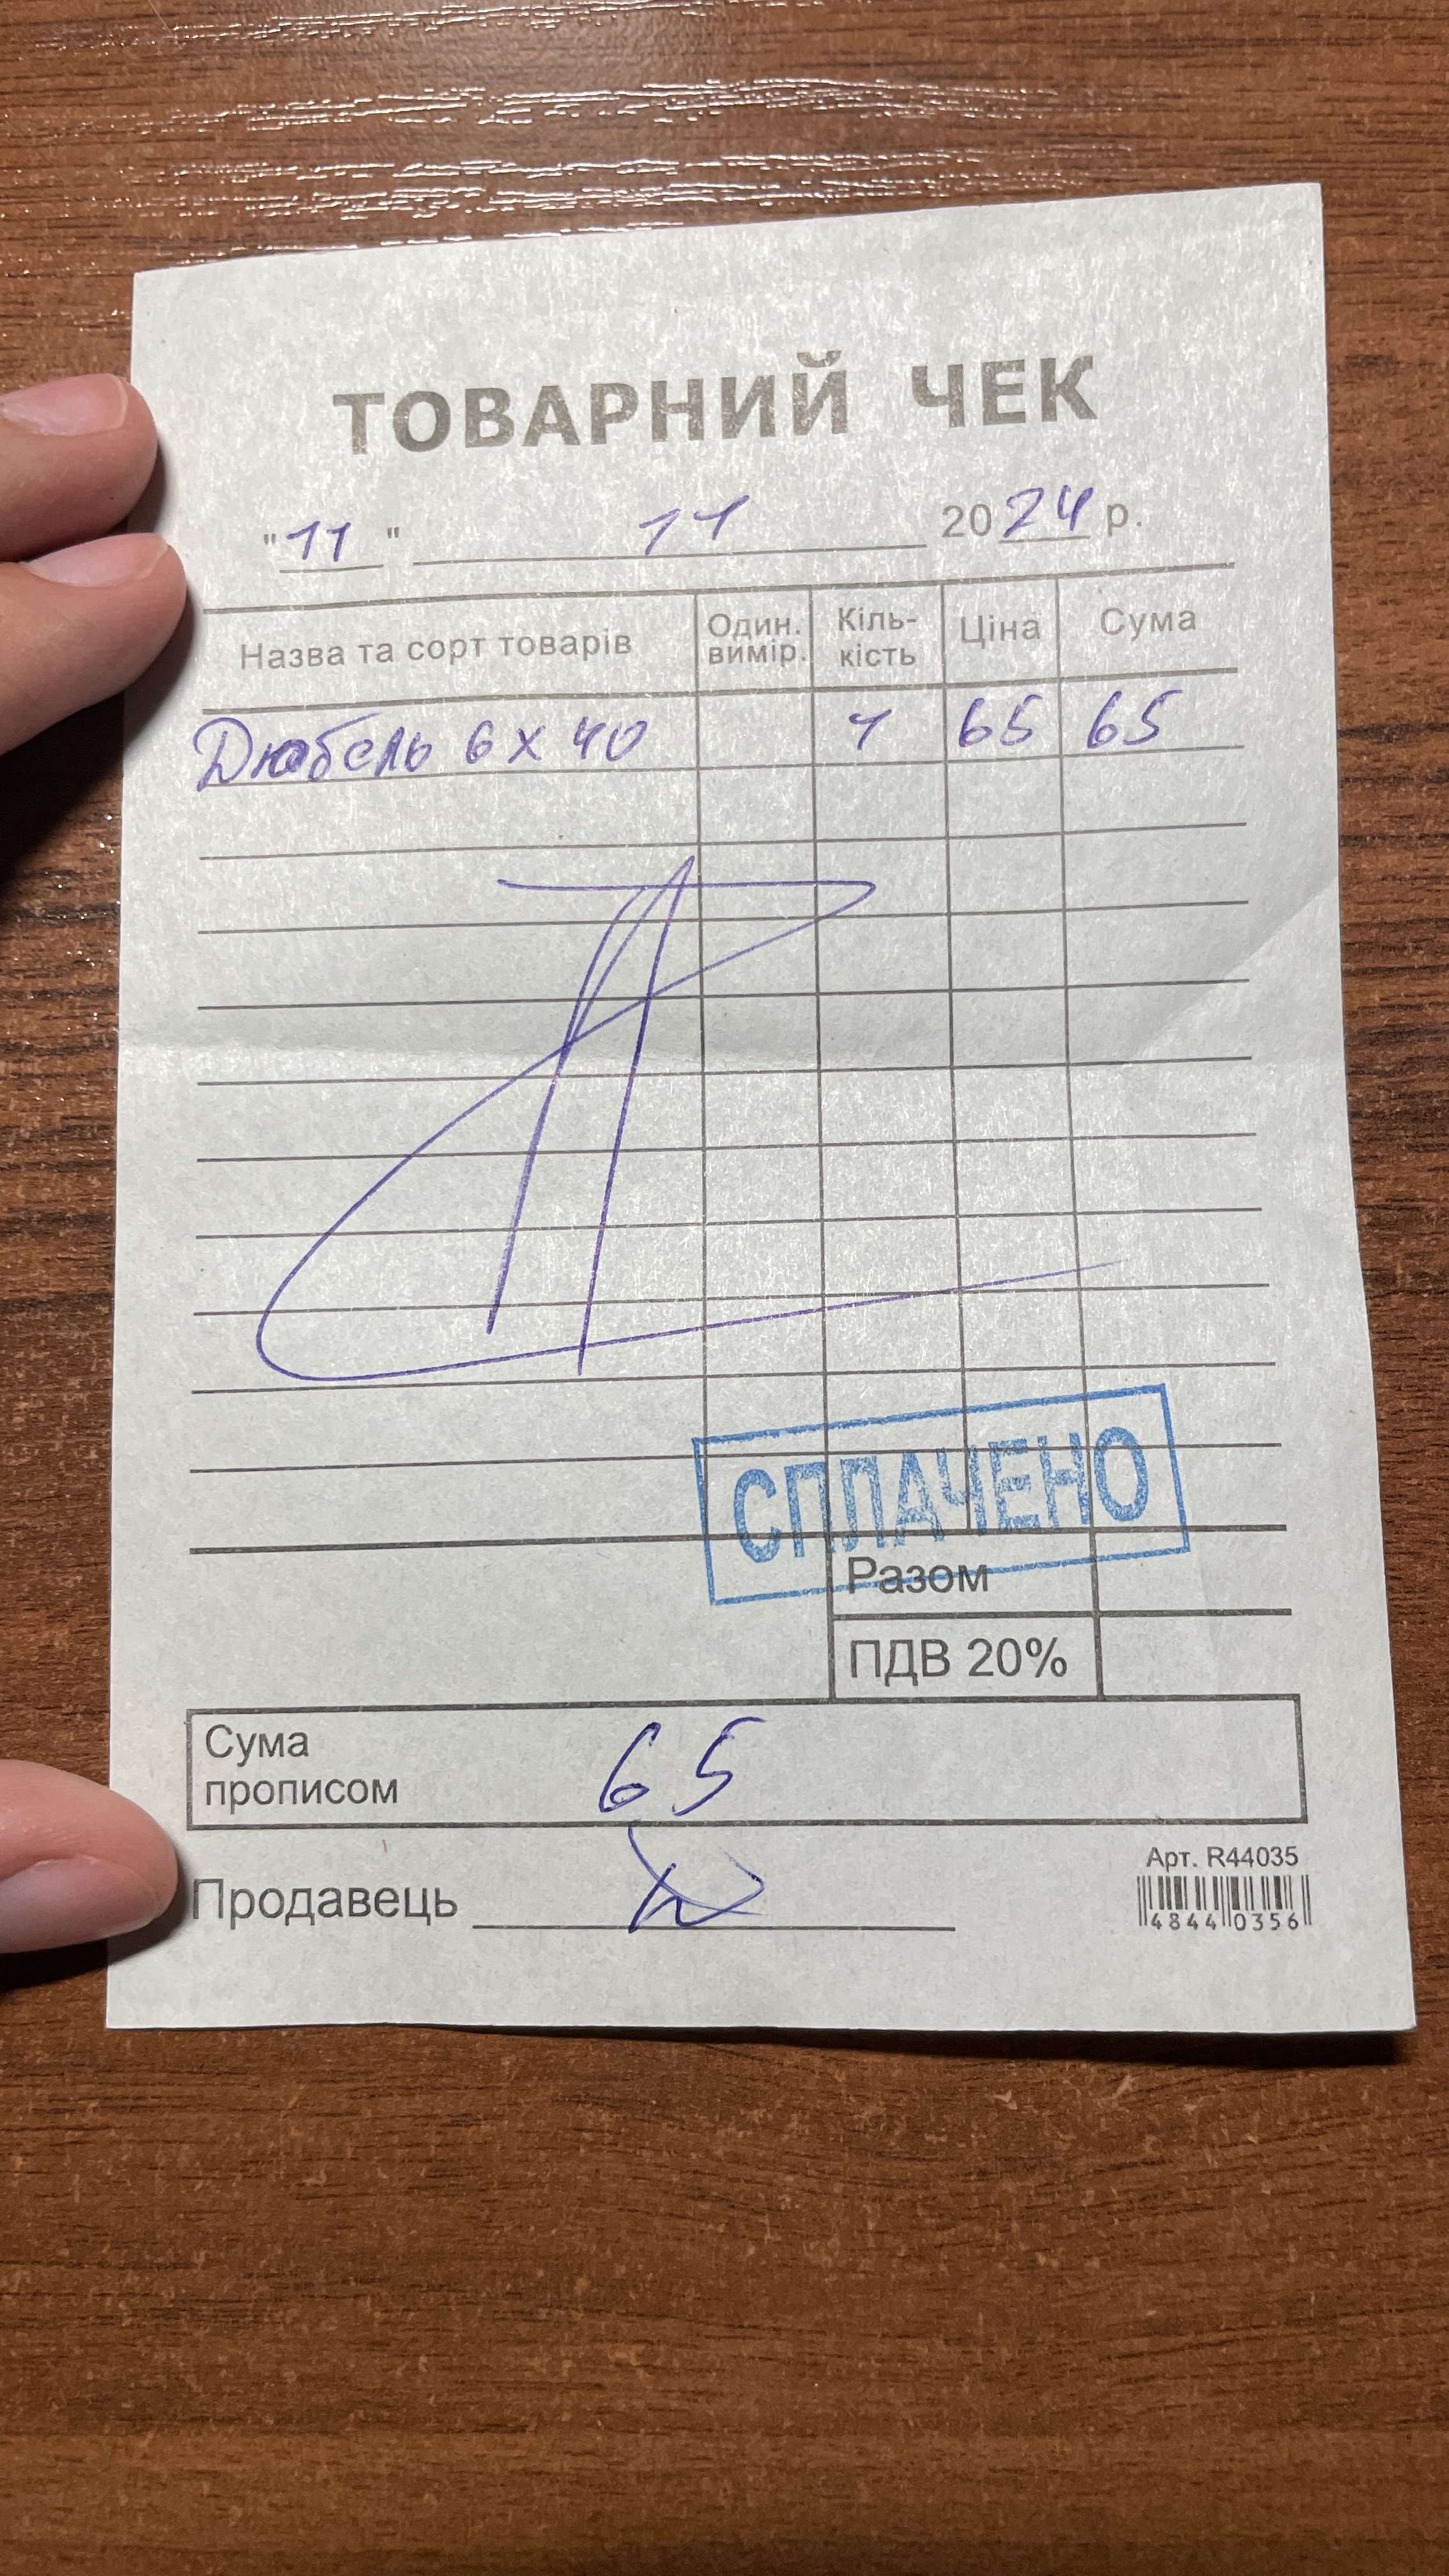 ТОВАРНИЙ ЧЕК
"11" 11 2024 р.
Назва та сорт товарів Один. вимір. Кіль-кість Ціна Сума
Дюбель 6 х 40 1 65 65
СПЛАЧЕНО
Разом
ПДВ 20%
Сума прописом 65
Продавець
Арт. R44035
48440356